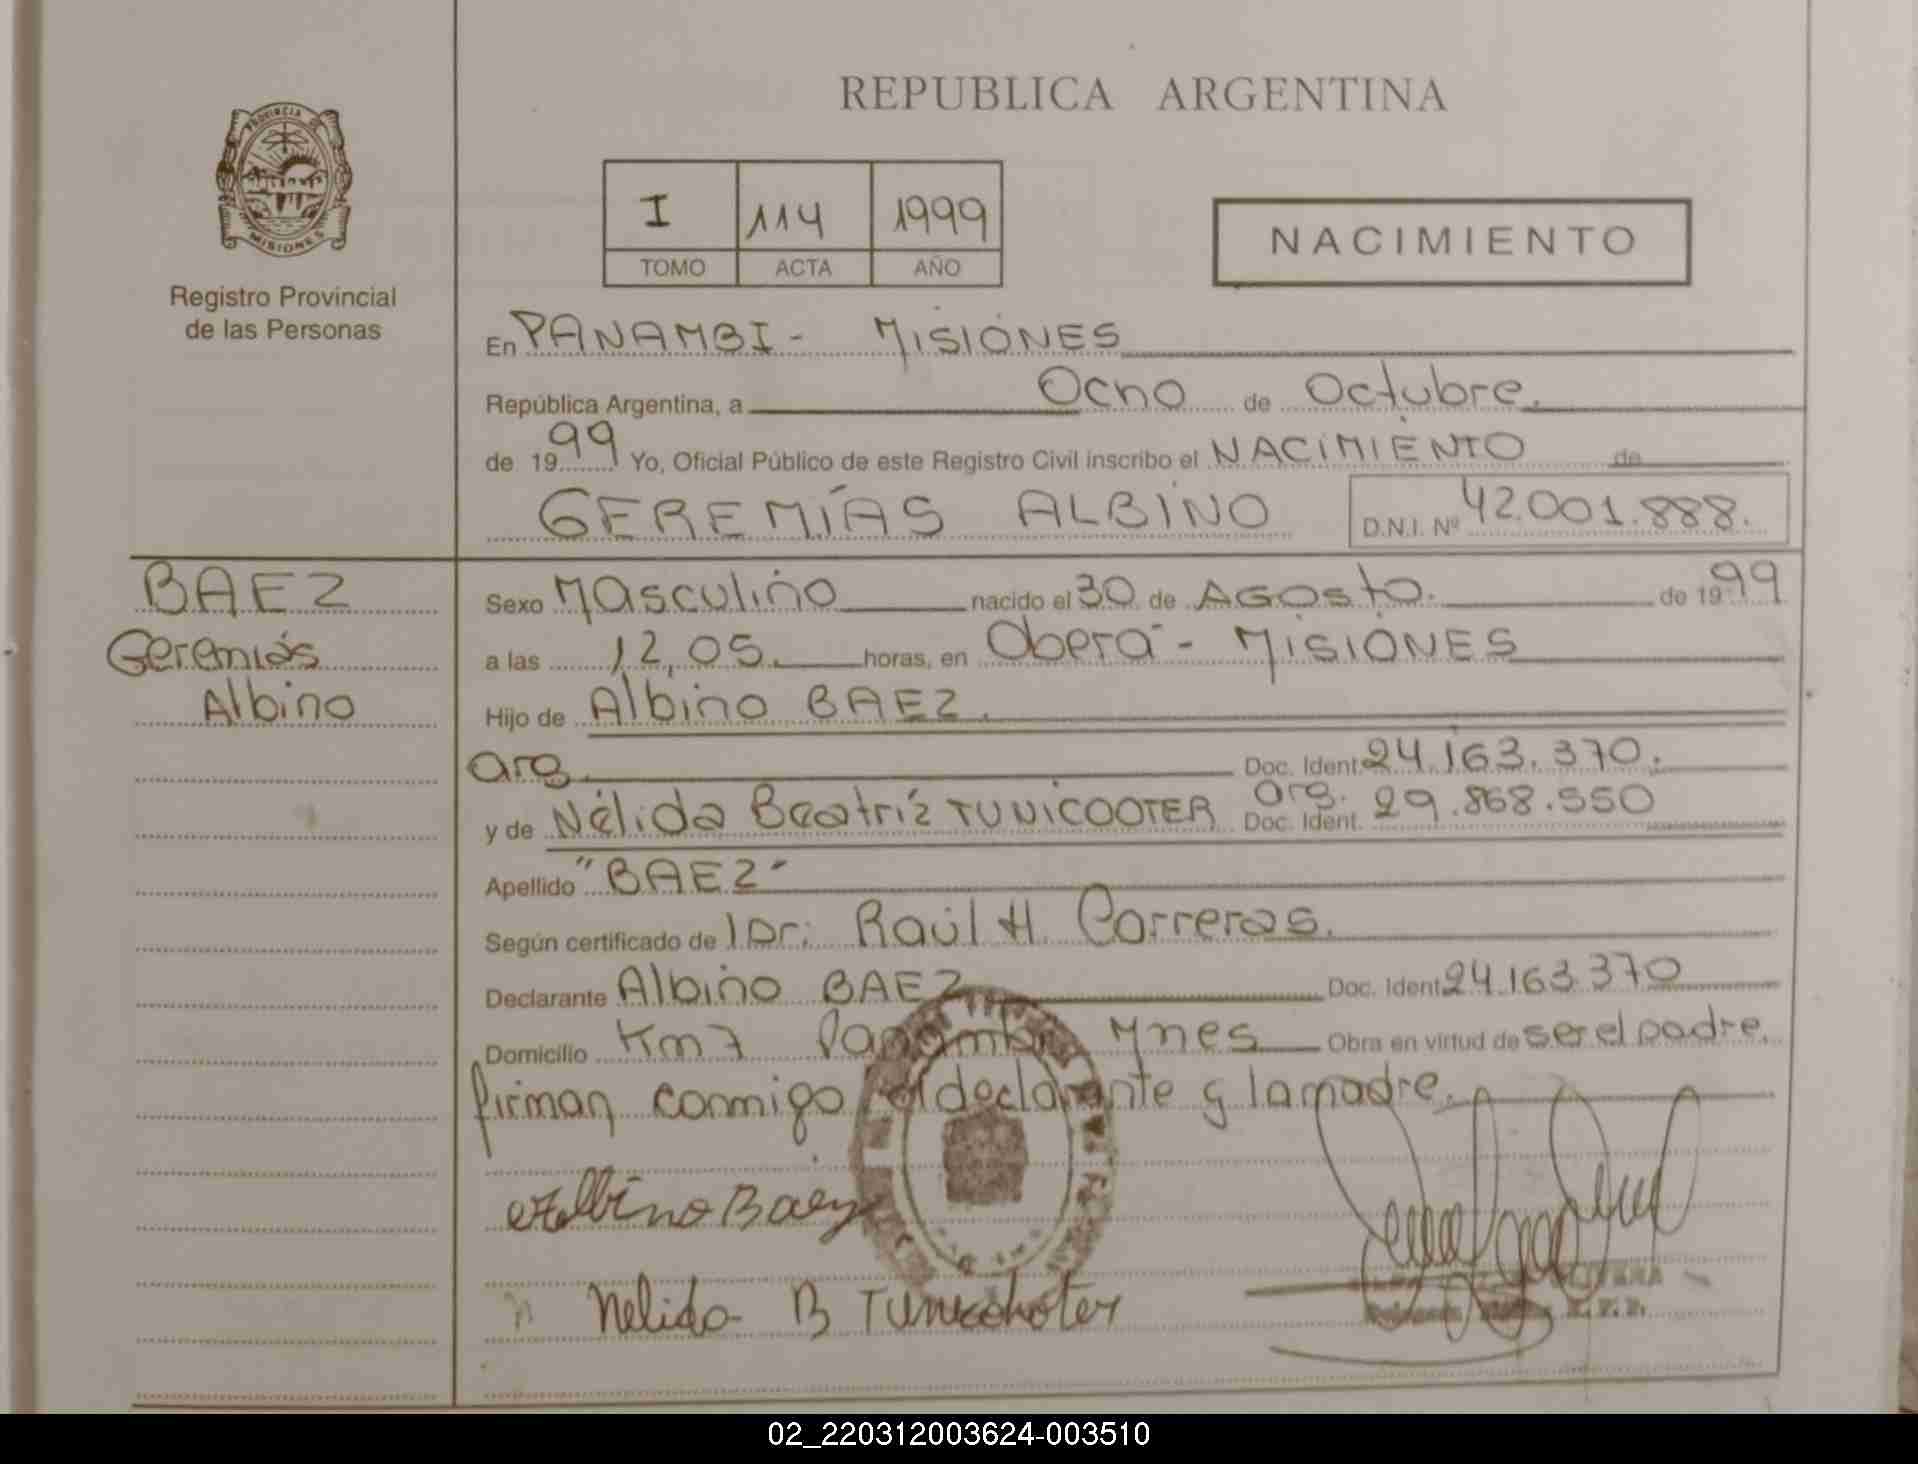 REPUBLICA ARGENTINA
PROVINCIA DE
MISIONES
Registro Provincial
de las Personas
I 114 1999
TOMO ACTA AÑO
NACIMIENTO
En PANAMBI - MISIONES
República Argentina, a Ocho de Octubre.
de 1999 Yo, Oficial Público de este Registro Civil inscribo el NACIMIENTO de
GEREMÍAS ALBINO D.N.I. Nº 42.001.888.
BAEZ
Geremías
Albino
Sexo Masculino nacido el 30 de AGOSTO. de 1999
a las 12,05. horas, en Oberá - MISIONES
Hijo de Albino BAEZ.
arg. Doc. Ident. 24.163.370.
y de Nélida Beatriz TUNICOOTER arg. Doc. Ident. 29.868.550
Apellido "BAEZ"
Según certificado de Dr: Raúl H. Carreras.
Declarante Albino BAEZ Doc. Ident. 24.163.370
Domicilio Km 7 Panambi Mnes Obra en virtud de ser el padre.
firman conmigo el declarante y la madre.
Albino Baez
Nelida B Tunicohoter
02_220312003624-003510